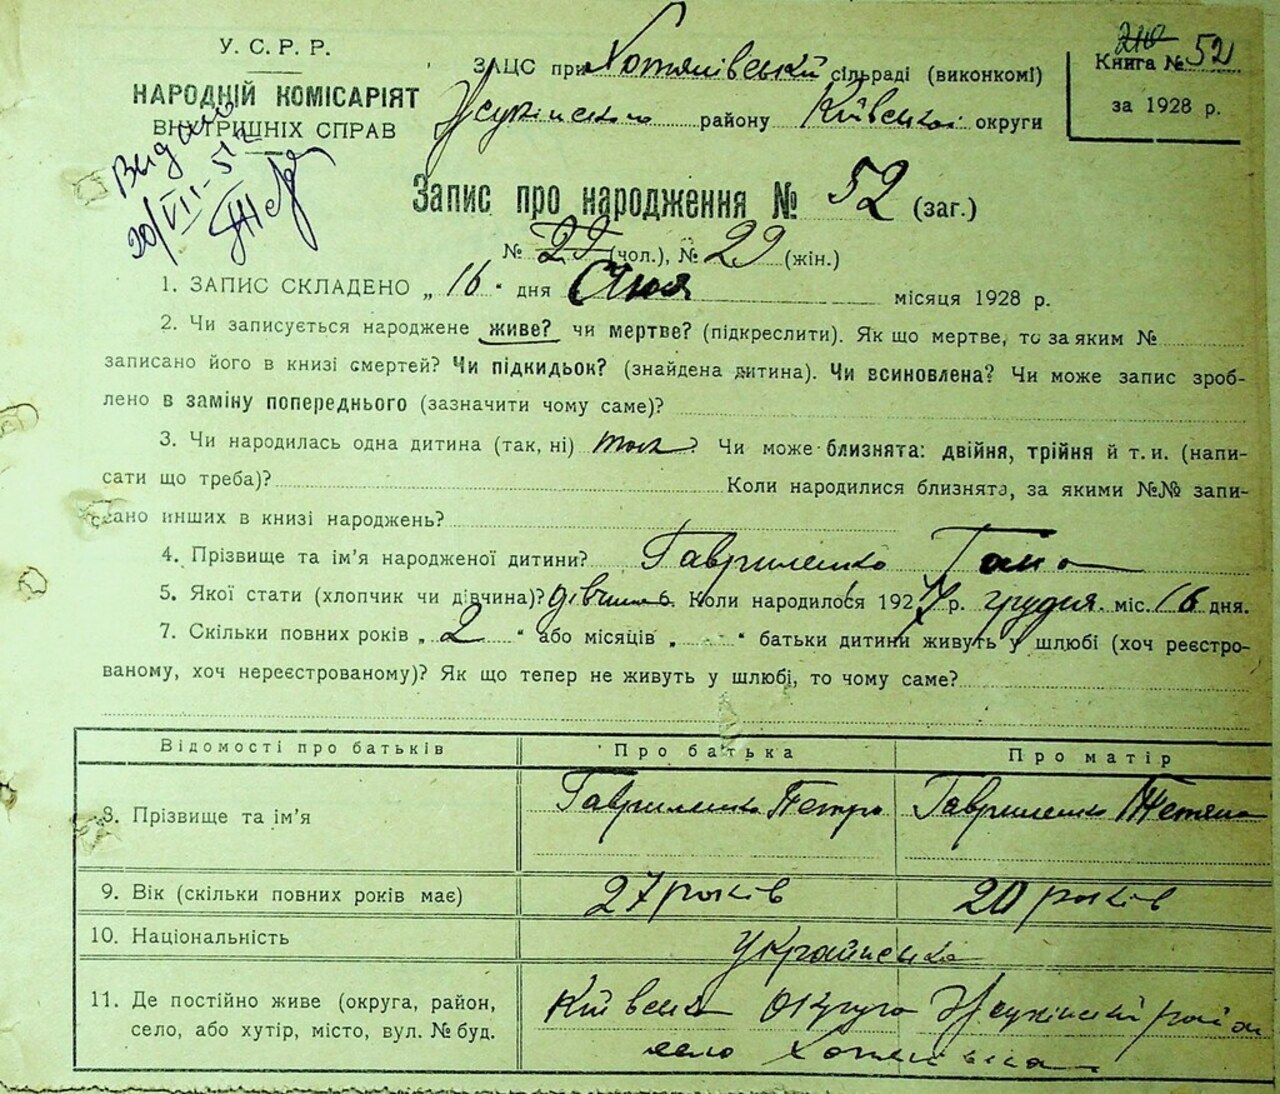 У. С. Р. Р.
НАРОДНІЙ КОМІСАРІЯТ
ВНУТРИШНІХ СПРАВ
Выдано
20/VII-52
ЗАЦС при Хотянівській сільраді (виконкомі)
району Київської округи
210
Книга № 52
за 1928 р.
Запис про народження № 52 (заг.)
№ 22 (чол.), № 29 (жін.)
1. ЗАПИС СКЛАДЕНО „ 16 “ дня Січня місяця 1928 р.
2. Чи записується народжене живе? чи мертве? (підкреслити). Як що мертве, то за яким №
записано його в книзі смертей? Чи підкидьок? (знайдена дитина). Чи всиновлена? Чи може запис зроб-
лено в заміну попереднього (зазначити чому саме)?
3. Чи народилась одна дитина (так, ні) так? Чи може близнята: двійня, трійня й т. и. (напи-
сати що треба)? Коли народилися близнята, за якими №№ запи-
сано инших в книзі народжень?
4. Прізвище та ім’я народженої дитини? Гавриленко Гана
5. Якої стати (хлопчик чи дівчина)? дівчина 6. Коли народилося 1927 р. грудня міс. 16 дня.
7. Скільки повних років „ 2 “ або місяців „ - “ батьки дитини живуть у шлюбі (хоч реєстро-
ваному, хоч нереєстрованому)? Як що тепер не живуть у шлюбі, то чому саме?
Відомості про батьків Про батька Про матір
8. Прізвище та ім’я Гавриленко Петро Гавриленко Тетяна
9. Вік (скільки повних років має) 27 років 20 років
10. Національність Українська
11. Де постійно живе (округа, район, Київська Округа район
село, або хутір, місто, вул. № буд. село Хотянівка